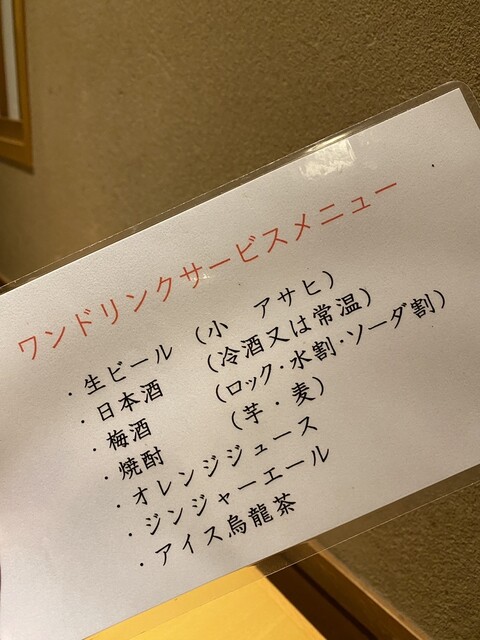 ワンドリンクサービスメニュー
・生ビール （小　アサヒ）
・日本酒 （冷酒又は常温）
・梅酒 （ロック・水割・ソーダ割）
・焼酎 （芋・麦）
・オレンジジュース
・ジンジャーエール
・アイス烏龍茶